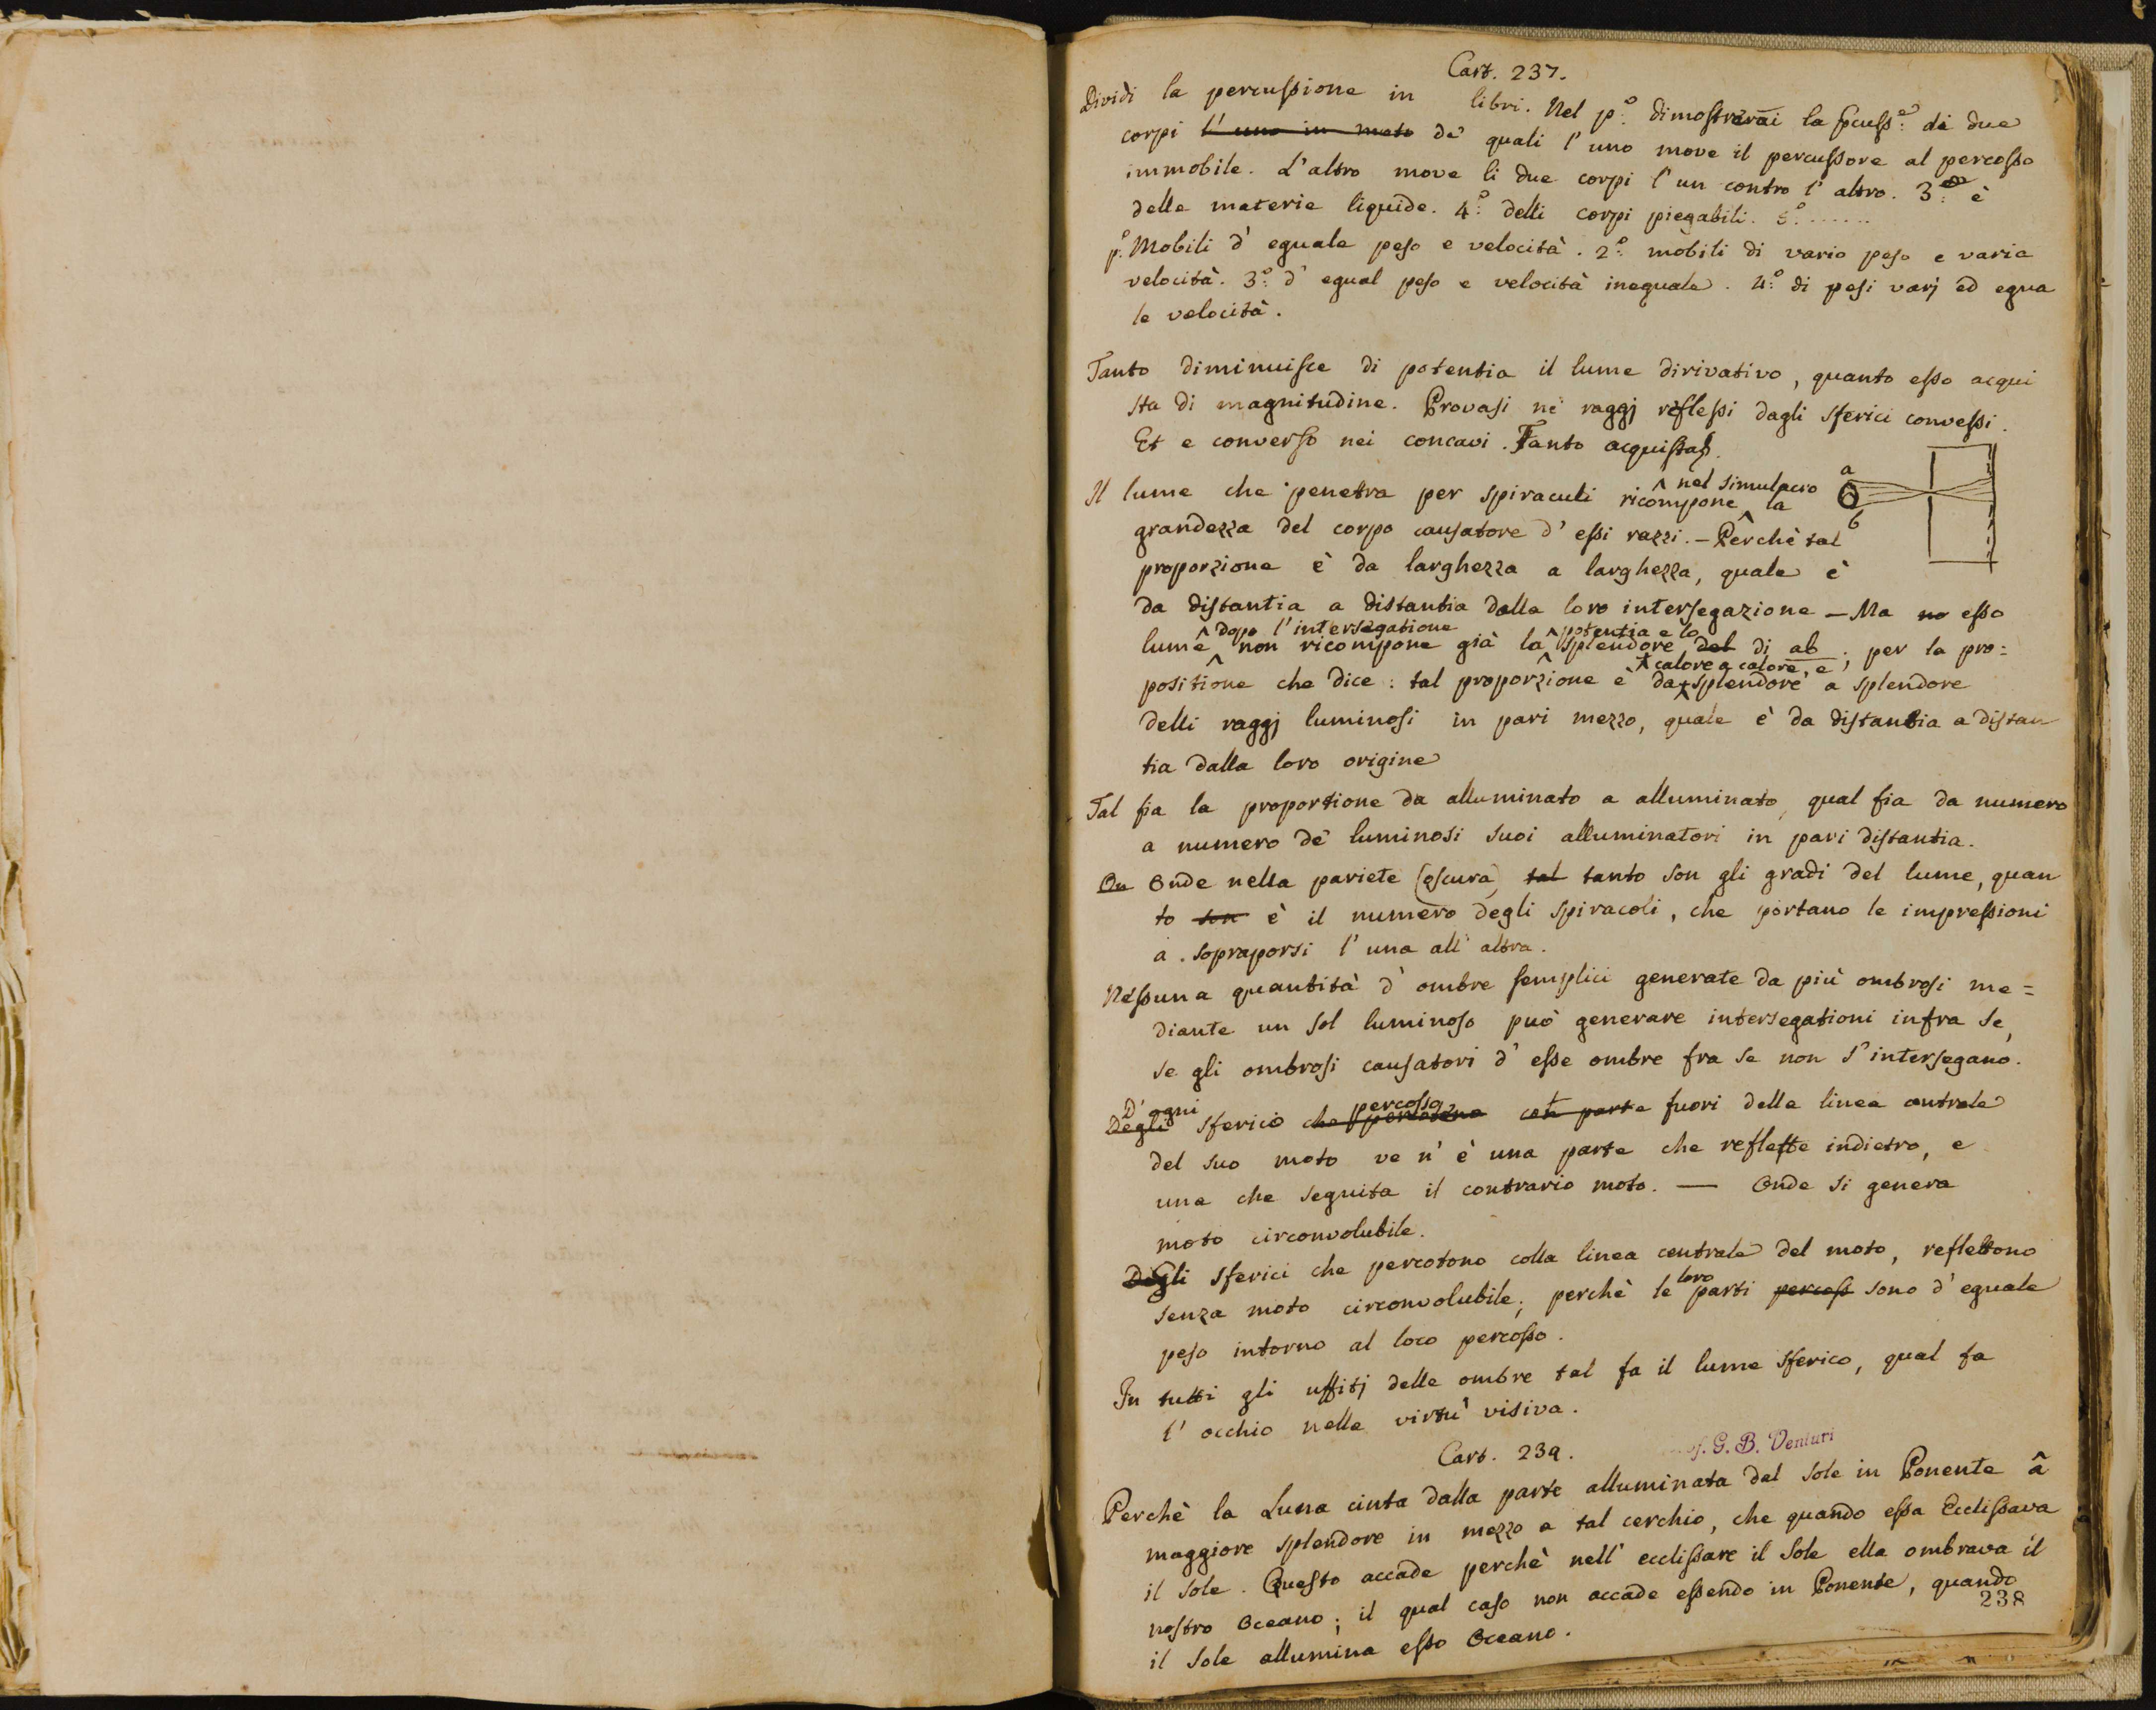 Cart. 237.
Dividi la percussione in libri. Nel p.º dimostrarai la pcuss.e di due
corpi l'uno in moto de' quali l'uno move il percussore al percosso
immobile. L'altro move li due corpi l'un contro l'altro. 3.º è
delle materie liquide. 4.º delli corpi piegabili. 5.º ......
p.º Mobili d'eguale peso e velocità. 2.º mobili di vario peso e varia
velocità. 3.º d'egual peso e velocità ineguale. 4.º di pesi varj ed egua
le velocità.
Tanto diminuisce di potentia il lume dirivativo, quanto esso acqui
sta di magnitudine. Provasi ne' raggj reflessi dagli sferici convessi.
Et e converso nei concavi. Tanto acquista
Il lume che penetra per spiraculi ricompone ^ nel simulacro la
a
b
grandezza del corpo causatore d'essi razzi. – Perchè tal
proporzione è da larghezza a larghezza, quale è
da distantia a distantia dalla loro intersegazione – Ma no esso
lume ^ dopo l'intersegatione non ricompone già la ^ potentia e lo splendore del di ab; per la pro=
positione che dice: tal proporzione è da + calore a calore, e splendore a splendore
delli raggj luminosi in pari mezzo, quale è da distantia a distan
tia dalla loro origine
Tal fia la proportione da alluminato a alluminato, qual fia da numero
a numero de' luminosi suoi alluminatori in pari distantia.
On Onde nella pariete (oscura) tal tanto son gli gradi del lume, quan
to son è il numero degli spiracoli, che portano le impressioni
a sopraporsi l'una all'altra.
Nessuna quantità d'ombre semplici generate da più ombrosi me=
diante un sol luminoso può generare intersegationi infra se,
se gli ombrosi causatori d'esse ombre fra se non s'intersegano.
Degli D'ogni sferico che percotono percosso con parte fuori della linea centrale
del suo moto ve n'è una parte che reflette indietro, e
una che seguita il contrario moto. — Onde si genera
moto circonvolubile.
Degli sferici che percotono colla linea centrale del moto, reflettono
senza moto circonvolubile; perchè le loro parti percoss sono d'eguale
peso intorno al loco percosso.
In tutti gli uffitj delle ombre tal fa il lume sferico, qual fa
l'occhio nella virtù visiva.
Cart. 239.
f. G. B. Venturi
Perchè la Luna cinta dalla parte alluminata dal sole in Ponente â
maggiore splendore in mezzo a tal cerchio, che quando essa Ecclissava
il sole. Questo accade perchè nell'ecclissare il Sole ella ombrava il
nostro Oceano; il qual caso non accade essendo in Ponente, quando
il sole allumina esso Oceano.
238